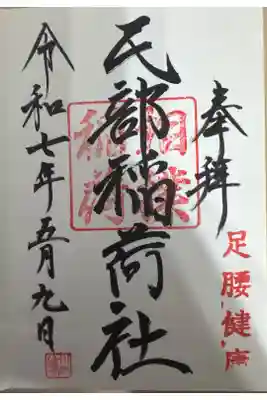 奉拝
足腰健康
民部稲荷社
稲荷
令和七年五月九日